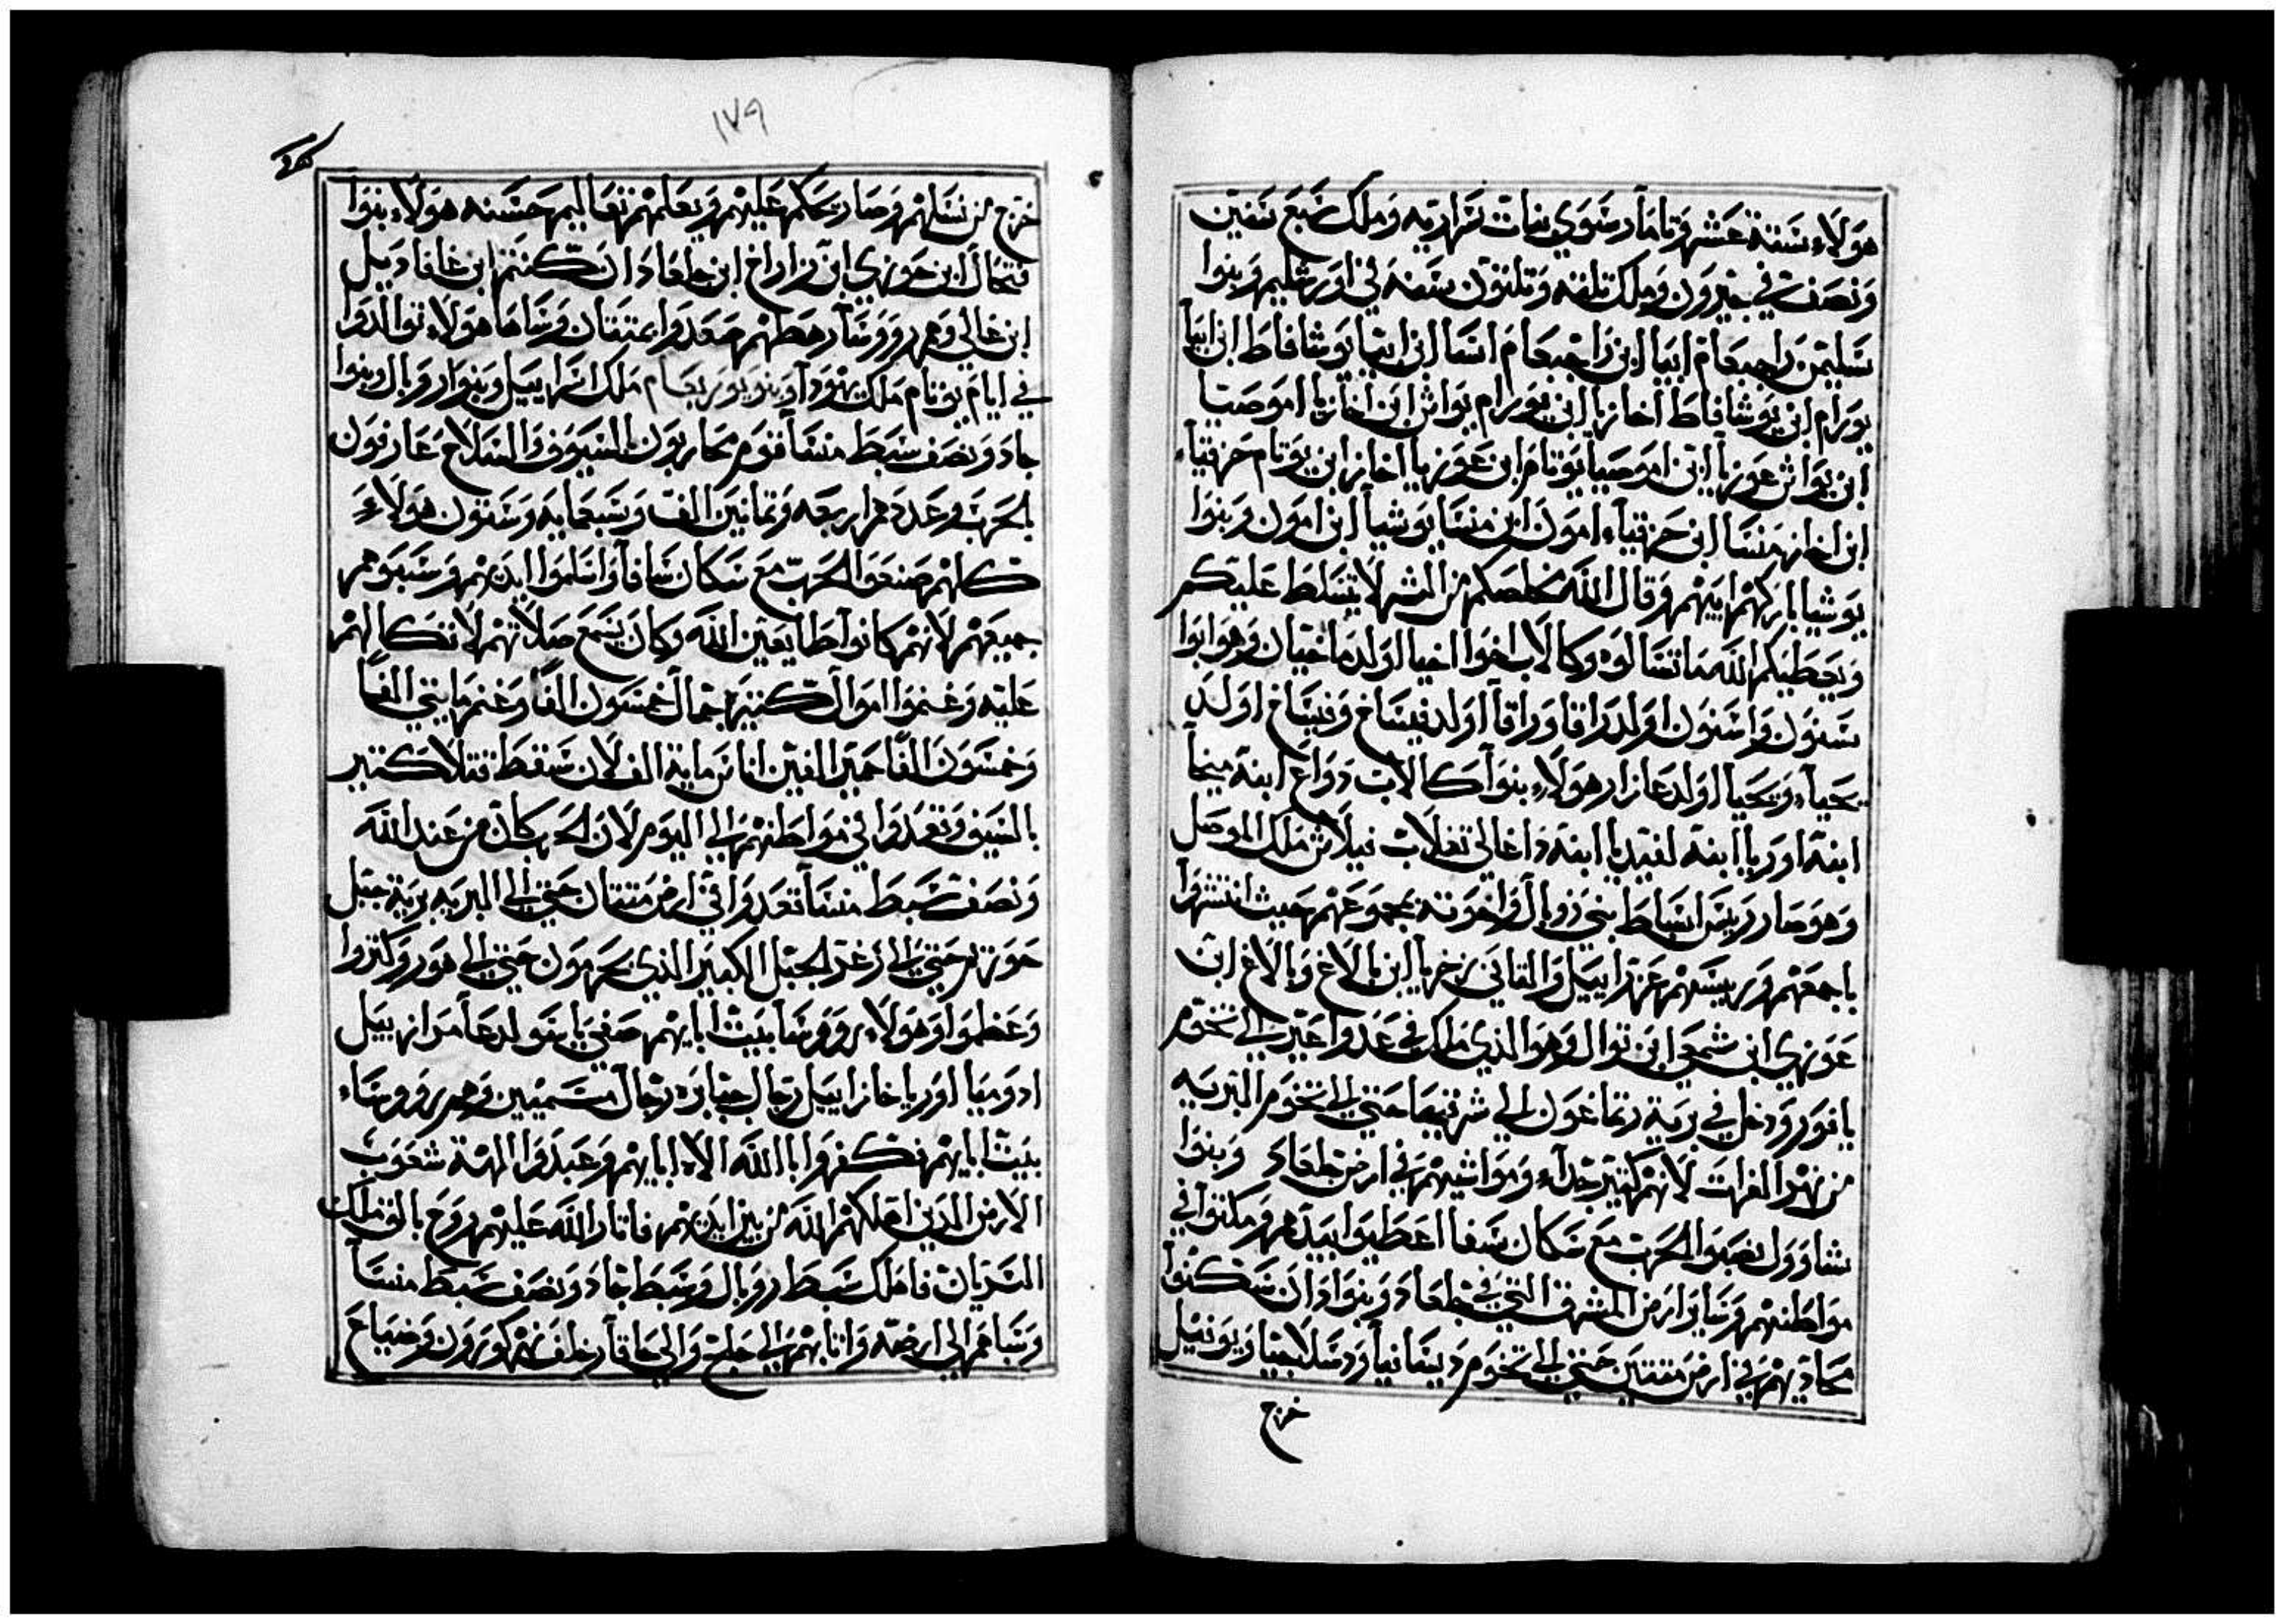 هولاء ستة عشر وتامار سوي بنات سراريه وملك سبع سنين
ونصف في حبرون وملك تلتة وتلتون سنه في اورشليم وبنوا
سليمن راجبعام ابيا ابن راجبعام اسا ابن ابيا يوشافاط ابن اسا
يورام ابن يوشافاط اخازيا ابن يورام يواش ابن اخازيا اموصيا
ابن يواش عوزيا ابن اموصيا يوتام ابن عوزيا اخاز ابن يوتام حزقياء
ابن اخاز منسا ابن حزقياء امون ابن منسا يوشيا ابن امون وبنوا
يوشيا باركهم ابيهم وقال الله يخلصكم من الشر لا يتسلط عليكم
ويعطيكم الله ما تسالوه وكالاب اخوا اخيا اولد ماخيان وهو ابوا
ستون واستون اولد رافا ورافا اولد فيساخ وفيساخ اولد
يحياء ويحيا اولد عازار هولاء بنوا كالاب دواع ابنة ميخا
ابنة اوريا ابنة لفيديا ابنة داغالي تغلات فيلاش ملك الموصل
وهو صار رييس اسباط بني روبال واخوته بجموعهم حيث انتشروا
باجمعهم ورييسهم عزراييل والتاني زخريا ابن بالاغ وبالاغ ابن
عوزي ابن شمعي ابن توال وهو الذي ملك في عدواعير الي تخوم
يافور ودخل في برية رتماغون الي شرقيها حتي الي تخوم البريه
من نهر الفرات لانهم كتير جداء ومواشيهم في ارض جلعاد وبنوا
شاوول نصبوا الحرب مع سكان سفا اعطيوا بيدهم ومكتوا في
مواطنهم وساير ارض المشرق التي في جلعاد وبنوا دان سكنوا
محاديهم في ارض متنين حتي الي تخوم ديسانيا ودسلاحيا ويونيل
خرج
١٧٩
خرج من نسلهم وصار يحكم عليهم ويعلمهم تعاليم حسنه هولاء بنوا
فتحال ابن حوزي ابن زاراخ ابن جلعاد ان كنتز ابن غافاديل
ابن غالي وهم روسا رهطهم صعدوا بمتنان وساها هولاء توالدوا
في ايام يوتام ملك يهودا وبنو يوربعام ملك اسراييل وبنوا روبال وبنوا
جاد ونصف سبط منسا قوم محاربون بالسيوف والسلاح عارفون
بالحرب وعددهم اربعه وتمانين الف وسبعمايه وستون هولاء
كلهم صنعوا الحرب مع سكان سافا واسلموا ايديهم وسبوهم
جميعهم لانهم كانوا طايعين الله وكان يسمع صلاتهم لاتكالهم
عليه وغنموا اموال كتيره جمال خمسون الفا وغنم مايتي الفا
وخمسون الفا حمير الفين اناس ماية الف لان سقط قتلا كتير
بالسيف وتعدوا في مواطنهم الي اليوم لان الحرب كان من عند الله
ونصف سبط منسا تعدوا في ارض متنان حتي الي البريه برية جبل
حوزتر حتي الي زغر الجبل الكبير الذي يحرمون حتي الي هور وكتروا
وعظموا وهولاء روسا بيت ابايهم صفي ياسو لدعا مرازبيل
ادوميا اوريا خازاييل رجال جبابره رجال مسميين وهم روساء
بيت ابايهم فكفروا بالله الاه ابايهم وعبدوا الهة شعوب
الارض الدين اهلكهم الله من بين ايديهم فاتار الله عليهم روح بالق ملك
السريان فاملك سبط روبال وسبط جاد ونصف سبط منسا
وسباهم الي ارضه واتا بهم الي حلح والي حاقار خلف نهر كورون وضياح